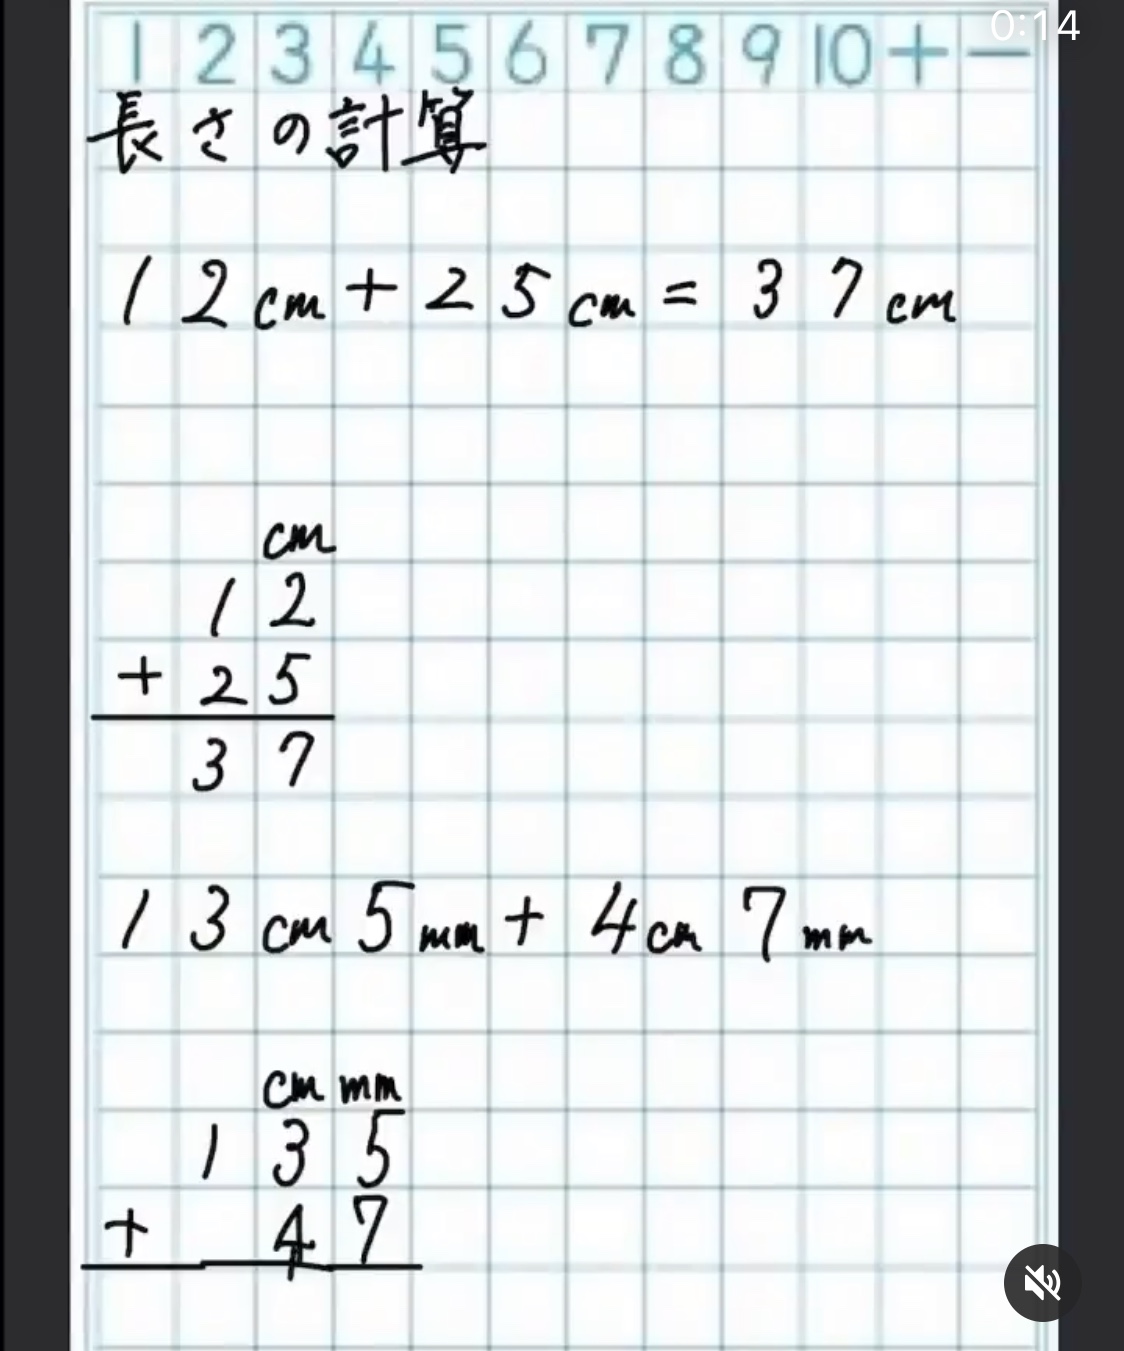 0:14
1 2 3 4 5 6 7 8 9 10 + −
長さの計算
12cm+25cm=37cm
cm
12
+25
37
13cm5mm+4cm7mm
cm mm
135
+47